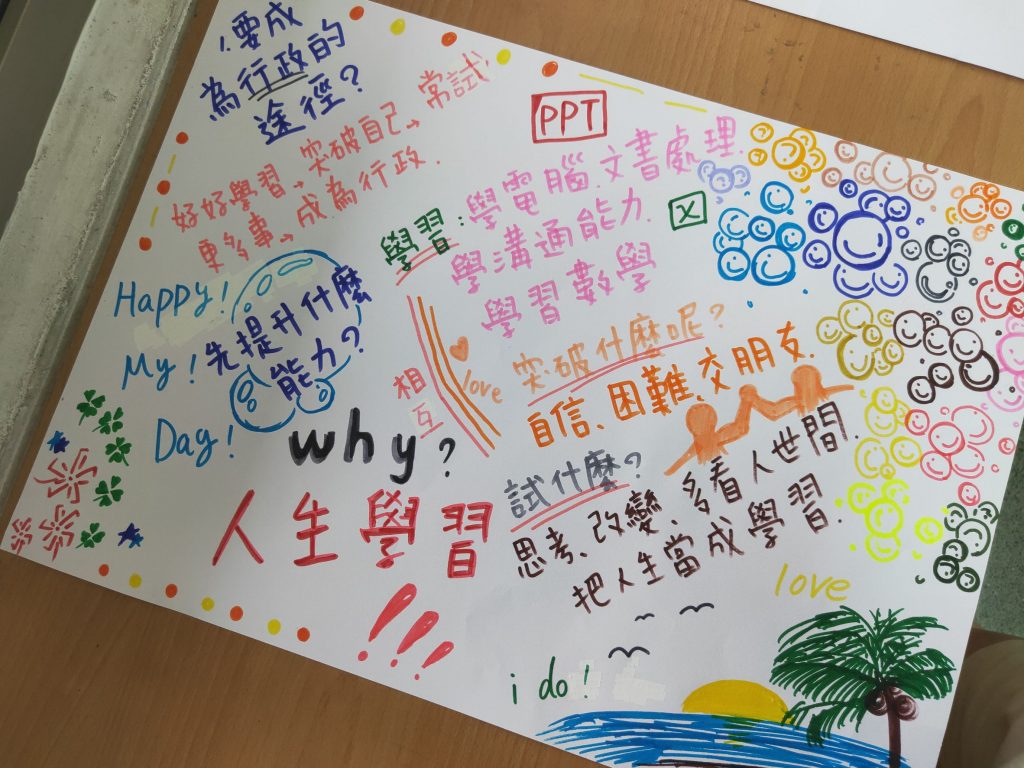 要成
為行政的
途徑？
好好學習、突破自己、常試
更多事、成為行政.
PPT
學習：學電腦.文書處理
學溝通能力.
學習數學
X
Happy!
My!
Day!
先提升什麼
能力？
相互
love
突破什麼呢？
自信、困難、交朋友.
why?
人生學習
!!!
試什麼？
思考、改變、多看人世間.
把人生當成學習.
love
i do!